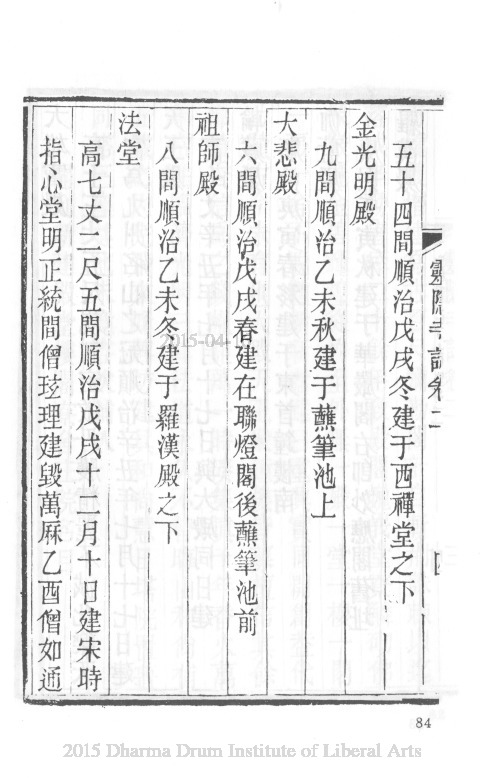 靈隱寺誌卷二
四
五十四間順治戊戌冬建于西禪堂之下
金光明殿
九間順治乙未秋建于蘸筆池上
大悲殿
六間順治戊戌春建在聯燈閣後蘸筆池前
祖師殿
八間順治乙未冬建于羅漢殿之下
法堂
高七丈二尺五間順治戊戌十二月十日建宋時
指心堂明正統間僧玹理建毀萬厤乙酉僧如通
84
2015 Dharma Drum Institute of Liberal Arts